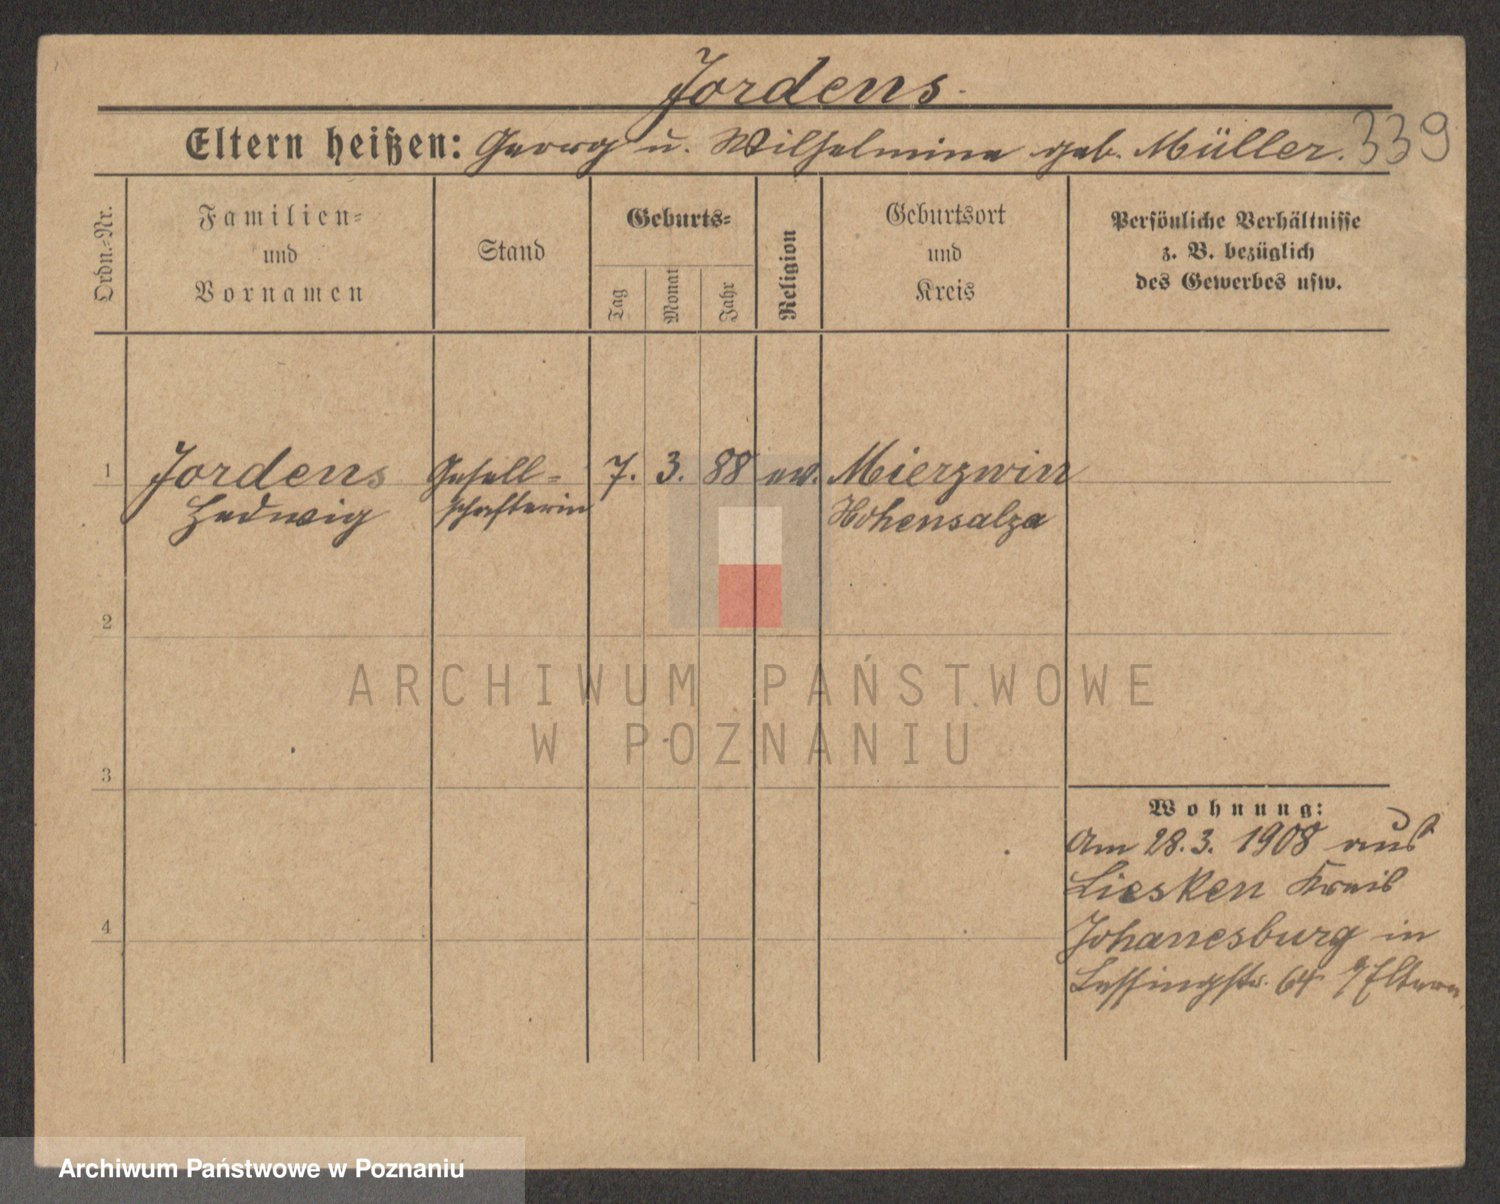 Jordens.
Eltern heißen: Georg u. Wilhelmine geb. Müller. 339
Ordn.-Nr.
Familien-
und
Vornamen
Stand
Geburts-
Tag
Monat
Jahr
Religion
Geburtsort
und
Kreis
Persönliche Verhältnisse
z. B. bezüglich
des Gewerbes usw.
1 Jordens Gesell- 7. 3. 88 ev. Mierzwin
Hedwig schafterin Hohensalza
2
ARCHIWUM PAŃSTWOWE
W POZNANIU
3
Wohnung:
Am 28.3. 1908 aus
Liesken Kreis
4
Johannesburg in
Lessingstr. 64 Eltern
Archiwum Państwowe w Poznaniu